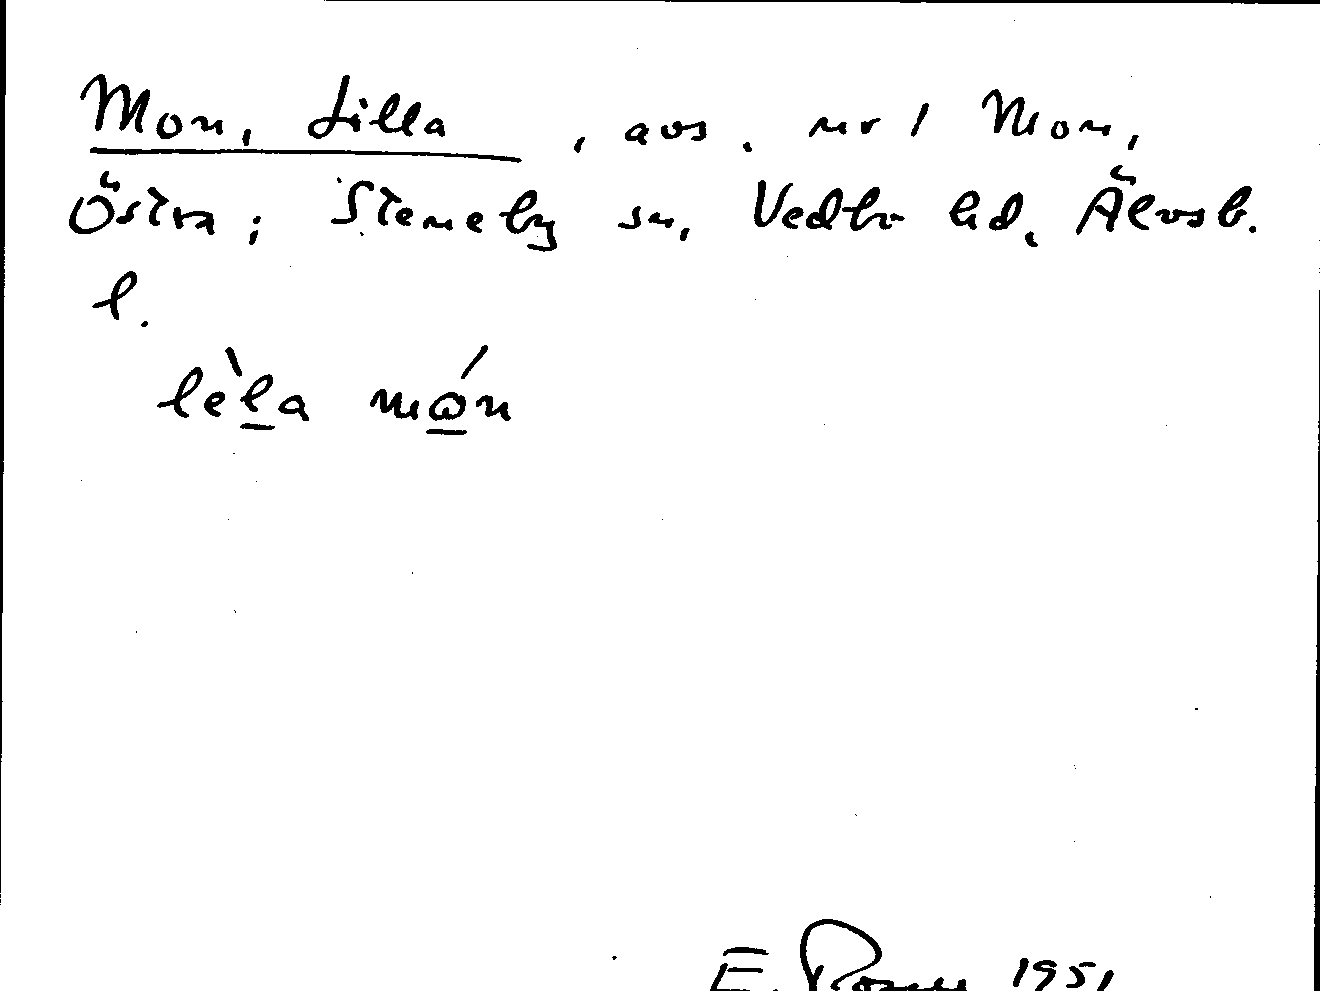 Mon, Lilla, avs. nr 1 Mon,
Östra; Steneby sn, Vedbo hd, Älvsb.
l.
lèl̲a mó̲n
E. 1951